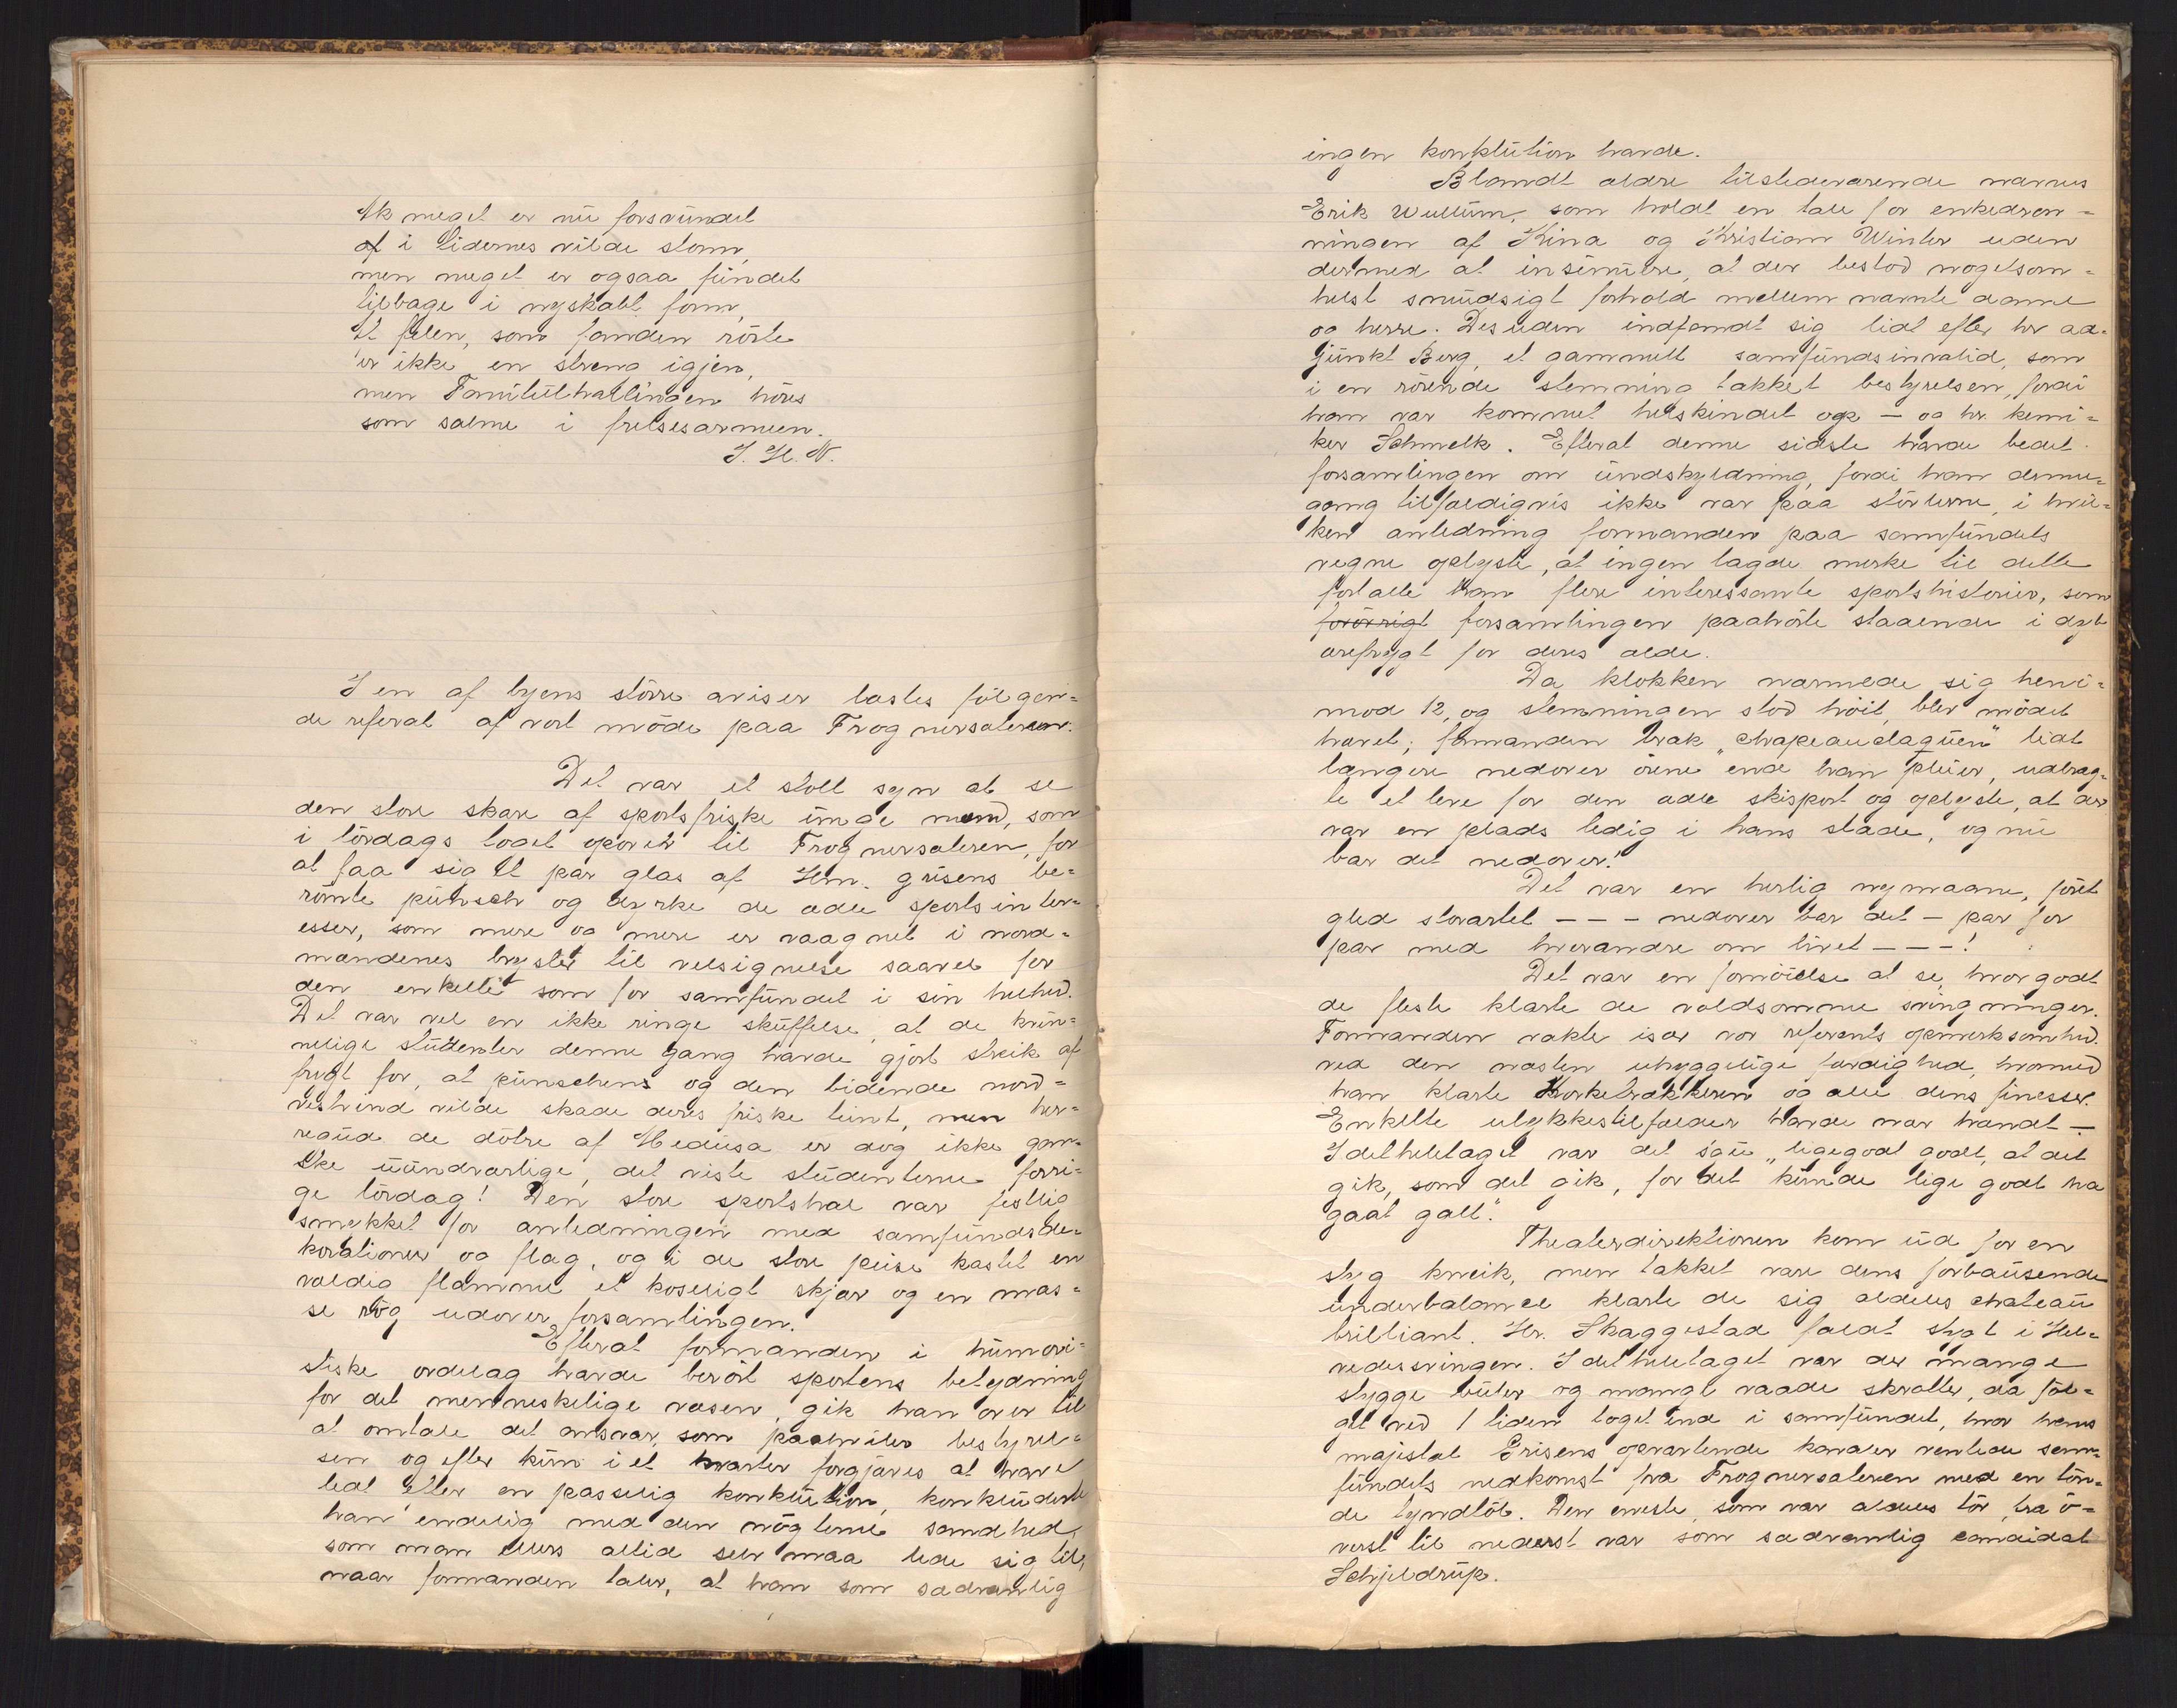 Ak meget er nu forsvundet
af i tidernes vilde storm,
men meget er ogsaa fundet
tilbage i nyskabt form,
At felen, som fanden rörte
er ikke en streng igjen,
men Fanitulhallingen höres
som salme i frelsesarmeen.
J. H. N.
I en af byens större aviser læstes fölgen=
de referat af vort möde paa Frognersæteren.
Det var et stolt syn at se
den store skare af sportsfriske unge mænd, som
i lördags toget opover til Frognersæteren, for
at faa sig et par glas af Hm. grisens be=
römte punsch og dyrke de ædle sportsinter=
esser, som mere og mere er vaagnet i nord=
mændenes bryster til velsignelse saavel for
den enkelte som for samfundet i sin helhed.
Det var vel en ikke ringe skuffelse, at de kvin=
nelige studenter denne gang havde gjort streik af
frygt for, at punschens og den bidende nord=
vestvind vilde skade deres friske teint, men her=
regud de dötre af Medusa er dog ikke gan=
ske uundværlige, det viste studenterne forri=
ge lördag! Den store sportshal var festlig
smykket for anledningen med samfundsde=
korationer og flag, og i de store peise kastet en
vældig flamme et koseligt skjær og en mas=
se rög udover forsamlingen.
Efterat formanden i humori=
stiske ordelag havde berört sportens betydning
for det menneskelige væsen, gik han over til
at omtale det ansvar, som paahviler bestyrel=
sen og efter kun i et kvarter forgjæves at have
ledt efter en passelig konklution, konkluderte
han endelig med den nögterne sandhed,
som man ellers altid selv maa lede sig til,
naar formanden taler, at han som sædvanlig
ingen konklution havde.
Blandt ældre tilstedeværende nævnes
Erik Wullum, som holdt en tale for enkedron=
ningen af Kina og Kristian Winter uden
dermed at insinuere, at der bestod nogetsom=
helst smudsigt forhold mellem nævnte dame
og herre. Desuden indfandt sig lidt efter hr ad=
junkt Berg, et gammelt samfundsinvalid, som
i en rörende stemning takket bestyrelsen, fordi
han var kommet helskindet op — og hr. kemi=
ker Schmelk. Efterat denne sidste havde bedet
forsamlingen om undskyldning, fordi han denne=
gang tilfældigvis ikke var paa stövlerne, i hvil=
ken anledning formanden paa samfundets
vegne oplyste, at ingen lagde merke til dette
fortalte han flere interessante sportshistorier, som
forövrigt forsamlingen paahörte staaende i dyb
ærefrygt for deres ælde.
Da klokken nærmede sig heni=
mod 12, og stemningen stod höit, blev mödet
hævet; formanden trak „chapeauclaquen" lidt
længere nedover örene end han pleier, udbrag=
te et leve for den ædle skisport og oplyste, at der
var en plads ledig i hans slæde, og nu
bar det nedover!
Det var en herlig nymaane, föret
gled storartet – – – nedover bar det – par for
par med hverandre om livet – – – !
Det var en fornöielse at se, hvor godt
de fleste klarte de voldsomme svingninger.
Formanden vakte især vor referents opmerksomhed
ved den næsten uhyggelige færdighed, hvormed
han klarte Korketrækkeren og alle dens finesser.
Enkelte ulykkestilfælder havde nær hændt –
I det heletaget var det sgu „ligegodt godt, at det
gik, som det gik, for det kunde lige godt ha
gaat galt".
Theaterdirektionen kom ud for en
styg kneik, men takket være dens forbausende
underbalance klarte de sig aldeles chateau
brilliant. Hr. Skaggestad faldt stygt i Hel=
vedessvingen. I det heletaget var der mange
stygge buler og mangt vaade skrotter, da föl=
get ved 1 tiden toget ind i samfundet, hvor hans
majestæt Grisens opvartende kavaler ventede sam=
fundets nedkomst fra Frognersæteren med en tön=
de tyndtöl. Den eneste, som var aldeles tör fra ö=
verst til nederst var som sædvanlig candidat
Schjeldrup.